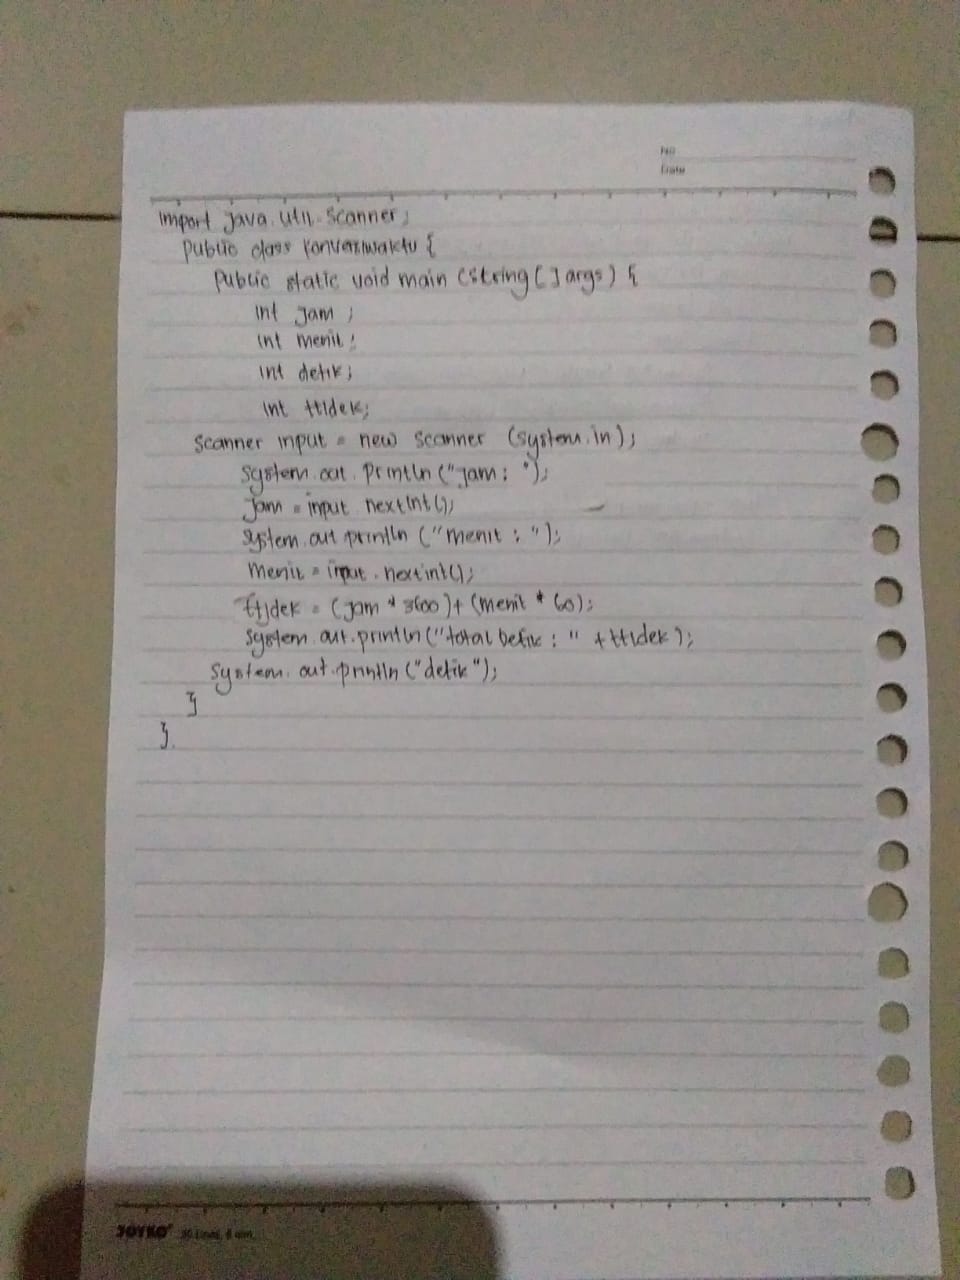 No
Date
import java.util.Scanner;
Public class Konversiwaktu {
Public static void main (String [] args) {
int jam ;
int menit;
int detik;
int ttldek;
Scanner input = new Scanner (system.in);
system.out.println ("jam : ");
jam = input nextint();
system.out println ("menit : ");
menit = input.nextint();
ttldek = (jam * 3600)+(menit * 60);
system.out.println("total detik : " +ttldek);
system.out.println ("detik");
}
}.
JOYKO